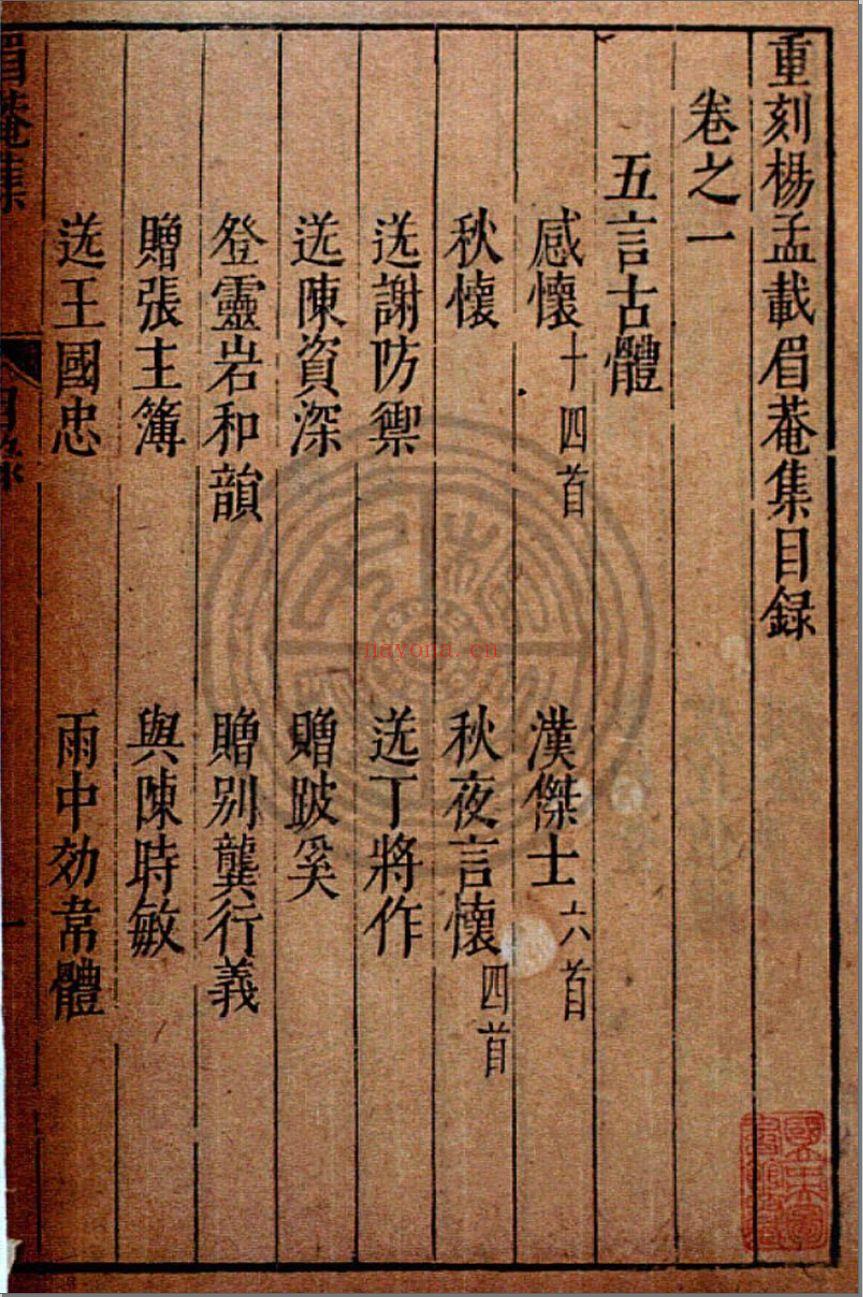 重刻楊孟載眉菴集目錄
卷之一
五言古體
感懷十四首 漢傑士六首
秋懷 秋夜言懷四首
送謝防禦 送丁將作
送陳資深 贈跛奚
登靈岩和韻 贈别龔行義
贈張主簿 與陳時敏
送王國忠 雨中効韋體
眉菴集 目錄 一
nayona.cn